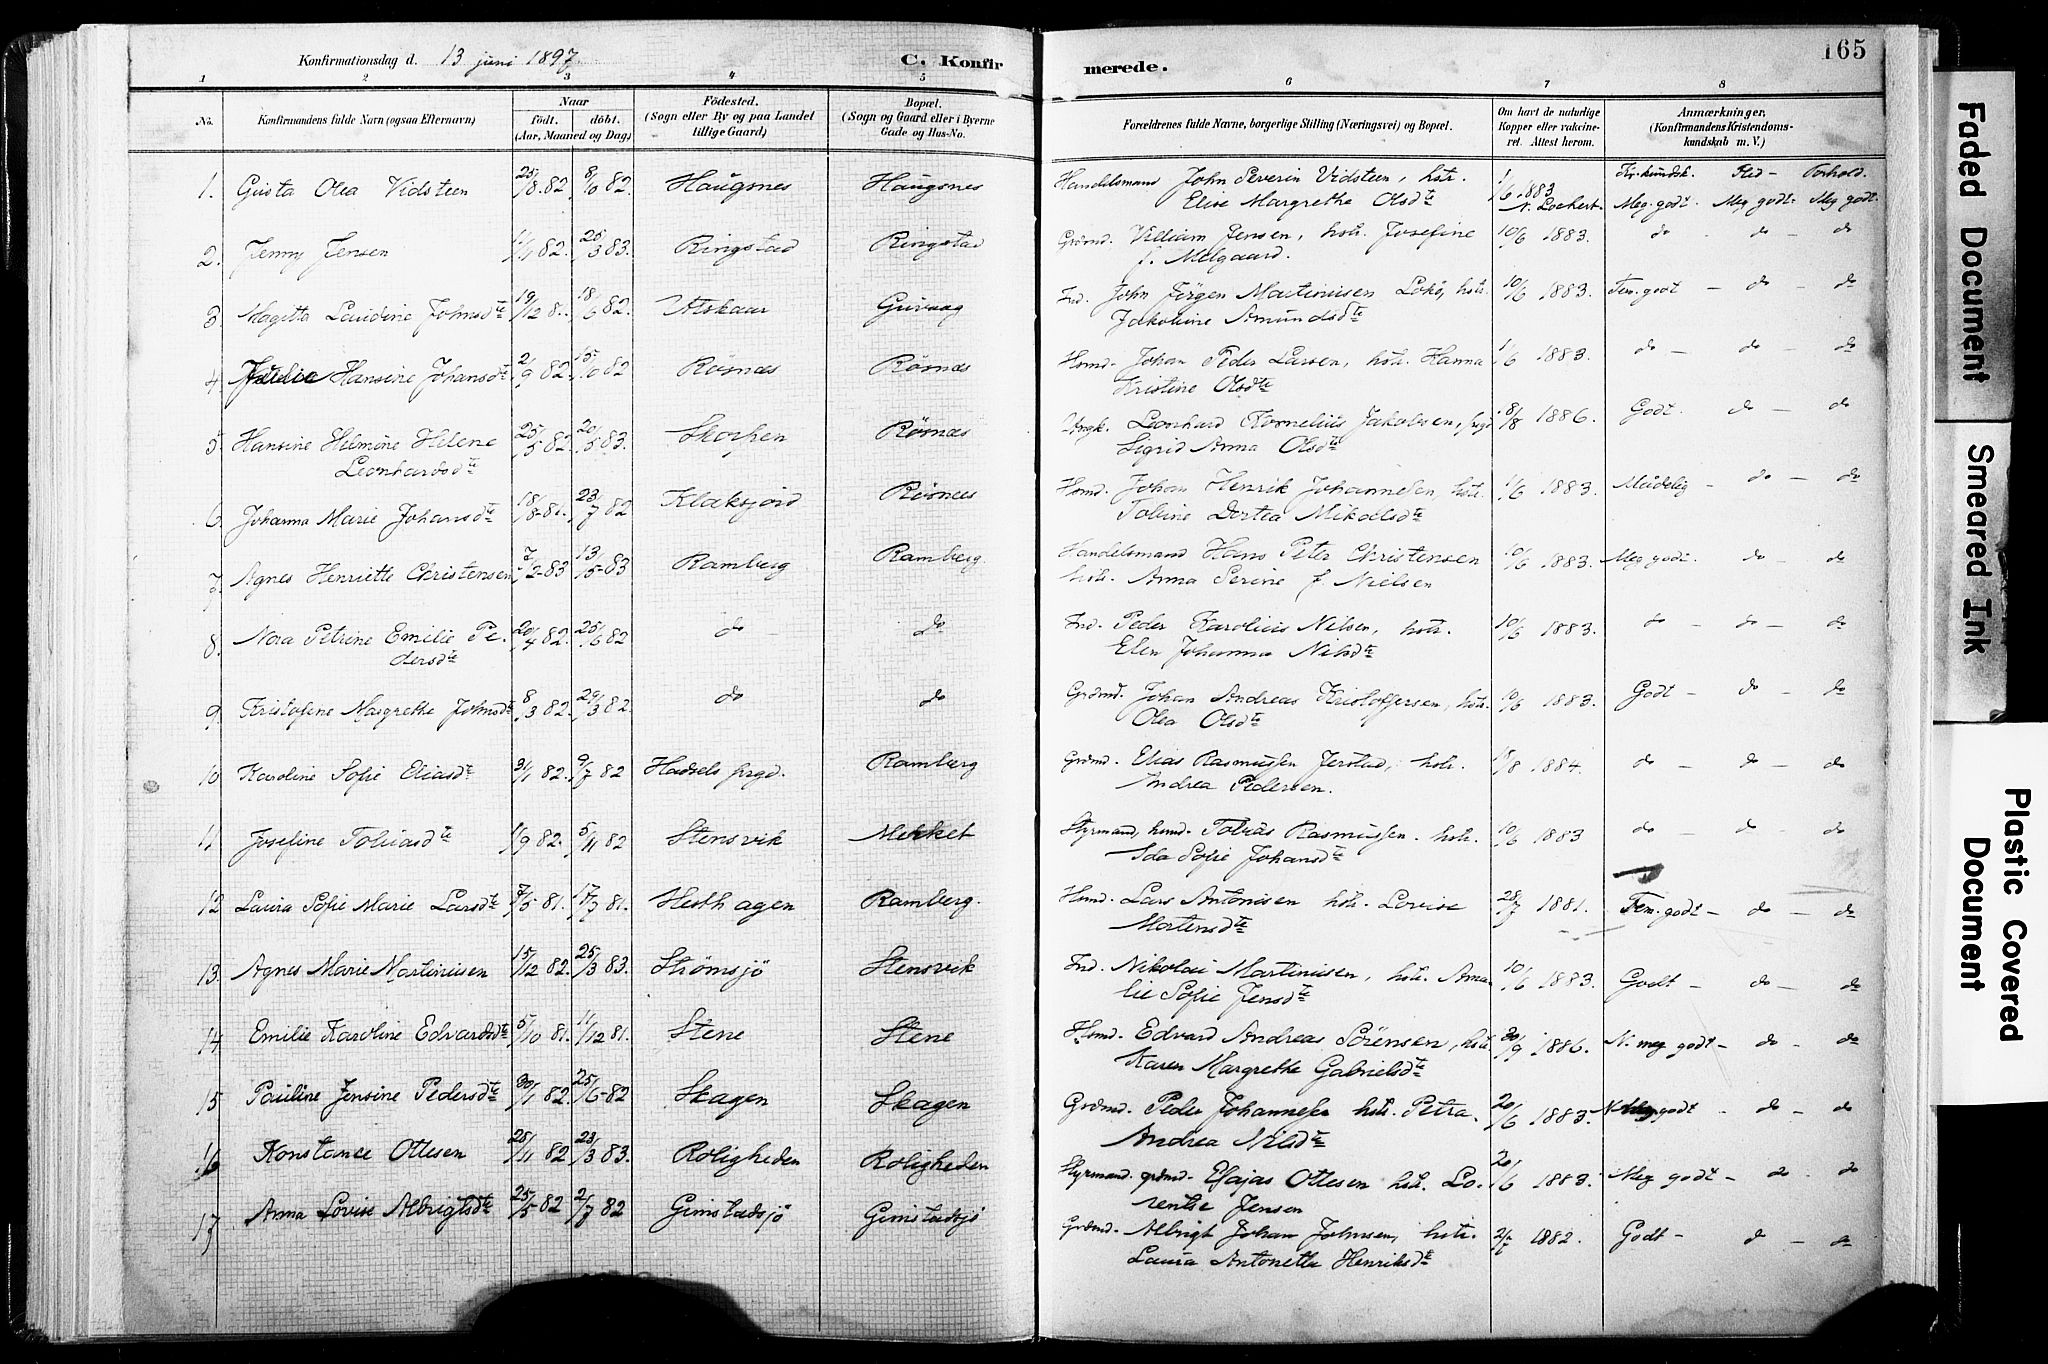 Konfirmationsdag d. 13 juni 1897. C. Konfirmerede. 165
1 2 3 4 5 6 7 8
No. Konfirmandens fulde Navn (ogsaa Efternavn) Naar födt. döbt. (Aar, Maaned og Dag) Födested. (Sogn eller By og paa Landet tillige Gaard) Bopæl. (Sogn og Gaard eller i Byerne Gade og Hus-No. Forældrenes fulde Navne, borgerlige Stilling (Næringsvei) og Bopæl. Om havt de naturlige Kopper eller vakcineret. Attest herom. Anmærkninger, (Konfirmandens Kristendomskundskab m. V.)
Kr. kundsk. Flid - Forhold.
1. Gusta Olea Vidsteen 25/8 82 8/10 82. Haugsnes Haugsnes Handelsmand John Severin Vidsteen, hstr. 1/6 1883
Elise Margrethe Olsdte N. Lockert. Meg. godt. Meg godt. Meg godt.
2. Jenny Jensen 1/1 82. 26/3 83. Ringstad Ringstad Grdmd. Villiam Jensen, hstr. Josefine 10/6 1883. do - do - do
f. Melgaard.
3 Magitta Laudine Johnsdte 19/12 81. 18/6 82. Alskaar Guvaag Ind. John Jörgen Martinusen Lokö, hstr. 10/6 1883. Tem. godt - do - do
Jakobine Amundsdte
4 Hansine Johansdte 2/9 82. 15/10 82 Rösnæs Rösnæs Hsmd. Johan Peder Larsen, hstr. Hanna 1/6 1883. do - do - do
Kristine Olsdte
5 Hansine Helmine Helene 25/5 82. 20/5 83. Skorpen Rösnæs Ungk. Leonhard Kornelius Jakobsen, pige 8/8 1886. Godt. do - do
Leonhardsdte Sigrid Anna Olsdte
6. Johanna Marie Johansdte 18/8-81. 23/7 82 Klaksjord Rösnæs Hsmd. Johan Henrik Johannesen, hstr. 1/6 1883. Maadelig - do - do
Tobine Dortea Mikalsdte
7. Agnes Henriette Christensen 7/2-83 13/5-83 Ramberg Ramberg Handelsmand Hans Peter Christensen 10/6 1883. Meg godt. do - do
hstr. Anna Serine f Nielsen
8. Nora Petrine Emilie Pe- 20/4 82. 25/6 82 do do Ind. Peder Karolius Nilsen, hstr. 10/6 1883. do - do - do
dersdte Elen Johanna Nilsdte
9 Kristofine Margrethe Johnsdte 8/3 82. 29/3 82. do do Grdmd. Johan Andreas Kristoffersen, hstr. 10/6 1883. Godt - do - do
Olea Olsdte
10 Karoline Sofie Eliasdte 31/1 82. 9/7 82 Hadsels prgd. Ramberg Grdmd. Elias Rasmussen Jerstad, hstr. 15/8 1884. do - do - do
Andrea Pedersen.
11 Josefine Tobiasdte 1/9 82. 5/11 82 Stensvik Mekket Styrmand, husmd. Tobias Rasmussen. hstr. 10/6 1883 do - do - do
Ida Sofie Johansdte
12 Laura Sofie Marie Larsdte 7/5 81. 17/7 81. Hesthagen Ramberg. Hsmd. Lars Antonisen hstr. Lovise 28/7 1881. Tem. godt - do - do
Mortensdte
13. Agnes Marie Martinusen 15/12 82. 25/3 83. Strömsjö Stensvik Ind. Nikolai Martinusen, hstr. Ama- 10/6 1883. Godt - do - do
lie Sofie Jensdte
14 Emilie Karoline Edvardsdte 5/10 81. 11/12 81. Stene Stene Hsmd. Edvard Andreas Sörensen, hstr. 30/9 1886. N. meg godt - do - do
Karen Margrethe Gabrielsdte
15 Pauline Jensine Pedersdte 30/1 82. 25/6-82 Skagen Skagen Grdmd. Peder Johannesen hstr. Petra 20/6 1883. N. Meg godt - do - do
Andrea Nilsdte
16 Konstance Ottesen 28/11 82 23/3 83. Roligheden Roligheden Styrmand. grdmd. Esajas Ottesen hstr. Lo- 20/6 1883. Meg godt - do - do
rentse Jensen
17. Anna Lovise Albrigtsdte 25/5 82 2/7 82 Gimstadsjö Gimstadsjö Grdmd. Albrigt Johan Johnsen, hstr. 1882. Godt - do - do
Laura Antonetta Henriksdte
Faded Document
Smeared Ink
Plastic Covered
Document